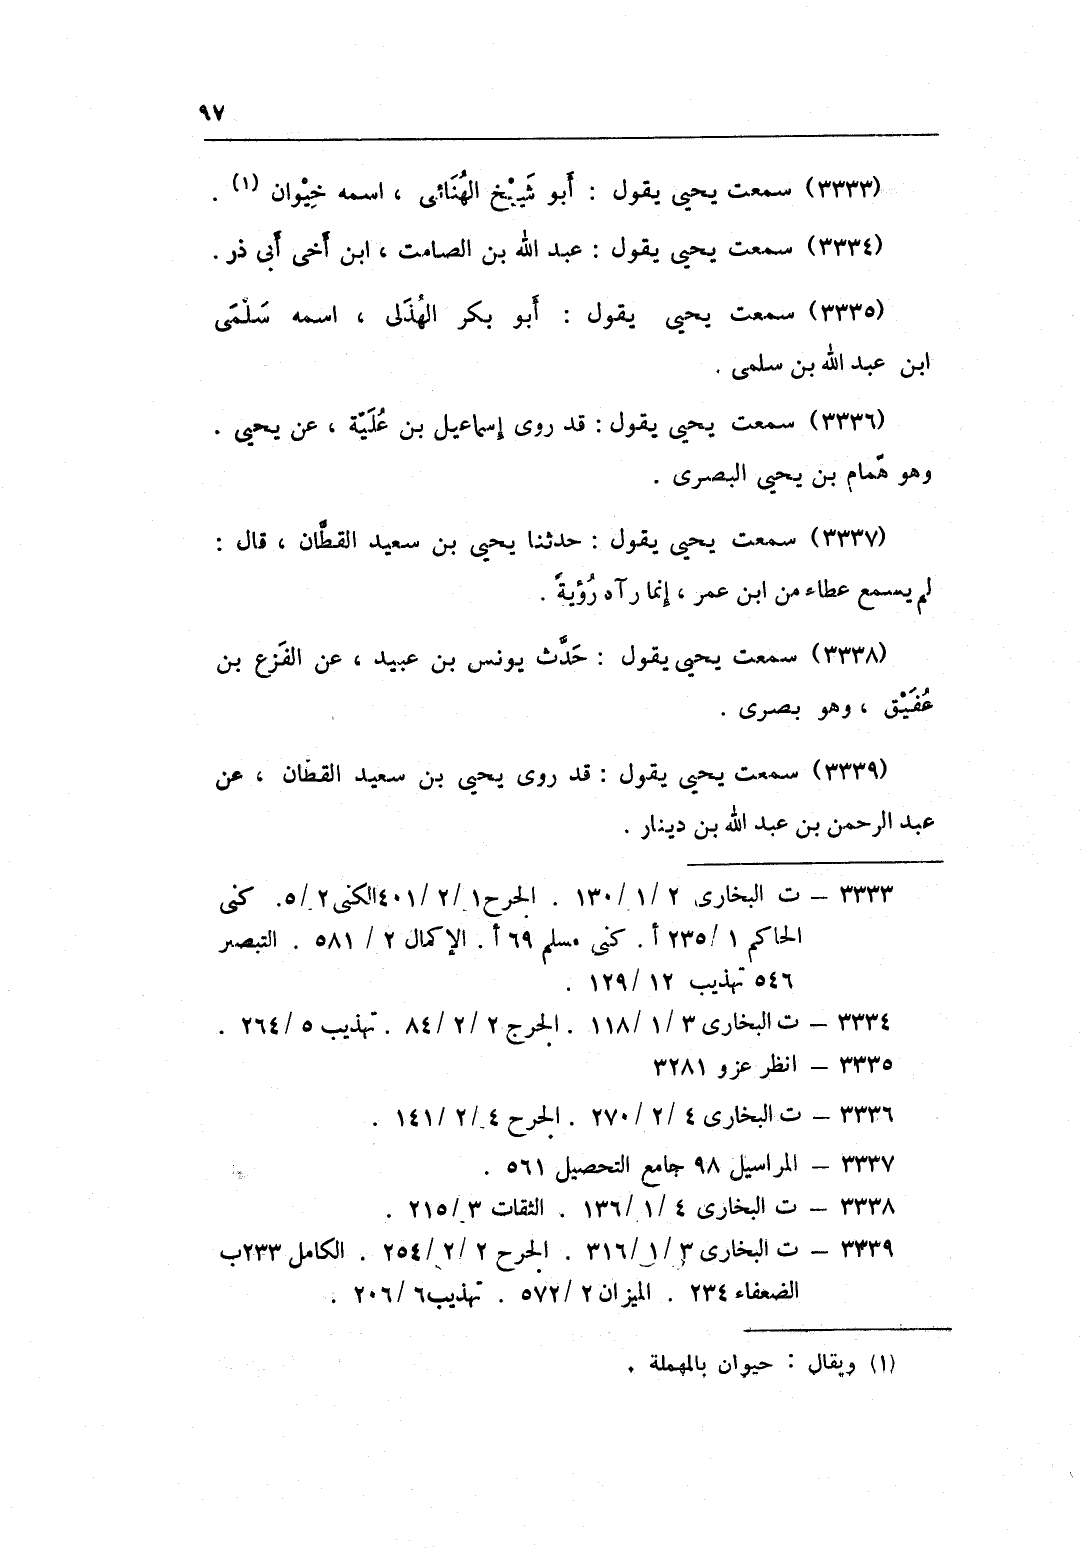 ٩٧
(٣٣٣٣) سمعت يحيى يقول : أَبو شَيْخ الهُنَائى ، اسمه خِيْوان (١) .
(٣٣٣٤) سمعت يحيى يقول : عبد الله بن الصامت ، ابن أَخى أَبى ذر .
(٣٣٣٥) سمعت يحيى يقول : أَبو بكر الهُذَلى ، اسمه سَلْمَى
ابن عبد الله بن سلمى .
(٣٣٣٦) سمعت يحيى يقول : قد روى إسماعيل بن عُلَيّة ، عن يحيى .
وهو همّام بن يحيى البصرى .
(٣٣٣٧) سمعت يحيى يقول : حدثنا يحيى بن سعيد القطَّان ، قال :
لم يسمع عطاء من ابن عمر ، إنما رآه رُؤيةً .
(٣٣٣٨) سمعت يحيى يقول : حَدَّث يونس بن عبيد ، عن الفَزع بن
عُفَيْق ، وهو بصرى .
(٣٣٣٩) سمعت يحيى يقول : قد روى يحيى بن سعيد القطان ، عن
عبد الرحمن بن عبد الله بن دينار .
٣٣٣٣ – ت البخارى ٢ /١ /١٣٠ . الجرح١ /٢ /٤٠١الكنى٢ /٥. كنى
الحاكم ١ /٢٣٥ أ . كنى مسلم ٦٩ أ . الإكمال ٢ / ٥٨١ . التبصير
٥٤٦ تهذيب ١٢ /١٢٩ .
٣٣٣٤ – ت البخارى ٣ /١ /١١٨ . الجرح ٢ /٢ /٨٤ . تهذيب ٥ /٢٦٤ .
٣٣٣٥ – انظر عزو ٣٢٨١
٣٣٣٦ – ت البخارى ٤ /٢ /٢٧٠ . الجرح ٤ /٢ /١٤١ .
٣٣٣٧ – المراسيل ٩٨ جامع التحصيل ٥٦١ .
٣٣٣٨ – ت البخارى ٤ /١ /١٣٦ . الثقات ٣ /٢١٥ .
٣٣٣٩ – ت البخارى ٣ /١ /٣١٦ . الجرح ٢ /٢ /٢٥٤ . الكامل ٢٣٣ب
الضعفاء ٢٣٤ . الميزان ٢ /٥٧٢ . تهذيب٦ /٢٠٦ .
(١) ويقال : حيوان بالمهملة .